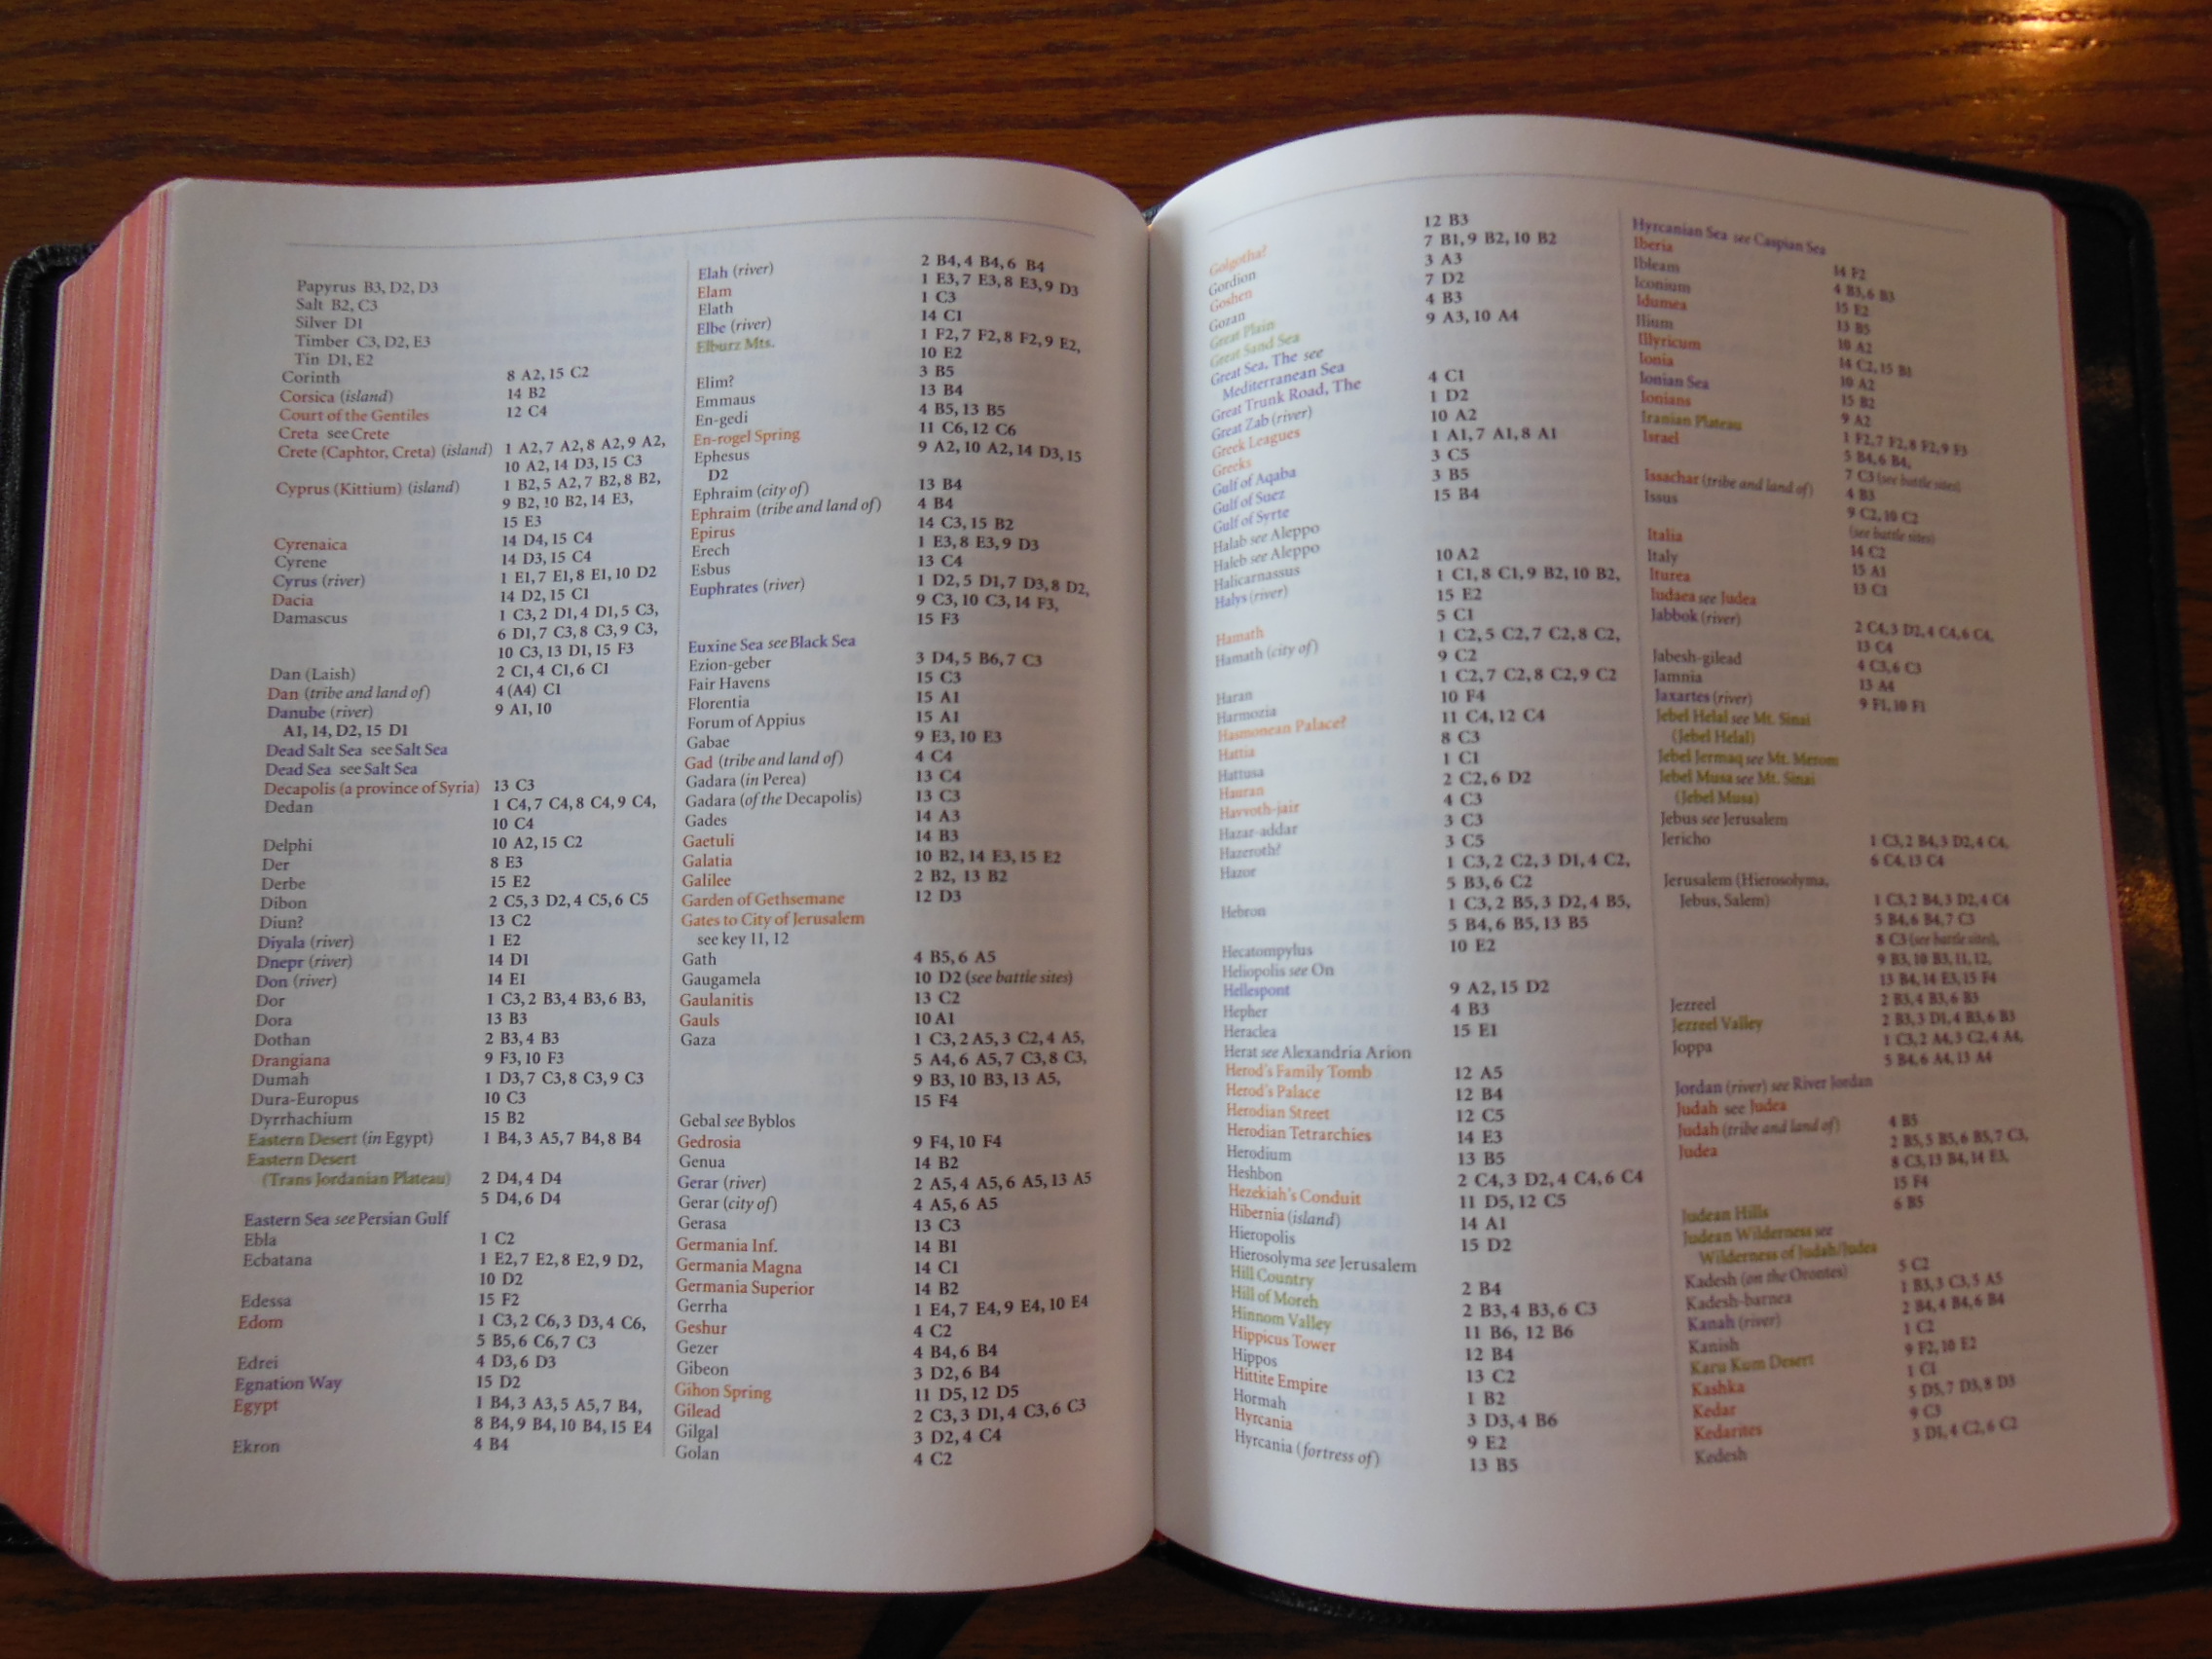 Papyrus B3, D2, D3
Salt B2, C3
Silver D1
Timber C3, D2, E3
Tin D1, E2
Corinth 8 A2, 15 C2
Corsica (island) 14 B2
Court of the Gentiles 12 C4
Creta see Crete
Crete (Caphtor, Creta) (island) 1 A2, 7 A2, 8 A2, 9 A2,
10 A2, 14 D3, 15 C3
Cyprus (Kittium) (island) 1 B2, 5 A2, 7 B2, 8 B2,
9 B2, 10 B2, 14 E3,
15 E3
Cyrenaica 14 D4, 15 C4
Cyrene 14 D3, 15 C4
Cyrus (river) 1 E1, 7 E1, 8 E1, 10 D2
Dacia 14 D2, 15 C1
Damascus 1 C3, 2 D1, 4 D1, 5 C3,
6 D1, 7 C3, 8 C3, 9 C3,
10 C3, 13 D1, 15 F3
Dan (Laish) 2 C1, 4 C1, 6 C1
Dan (tribe and land of) 4 (A4) C1
Danube (river) 9 A1, 10
A1, 14, D2, 15 D1
Dead Salt Sea see Salt Sea
Dead Sea see Salt Sea
Decapolis (a province of Syria) 13 C3
Dedan 1 C4, 7 C4, 8 C4, 9 C4,
10 C4
Delphi 10 A2, 15 C2
Der 8 E3
Derbe 15 E2
Dibon 2 C5, 3 D2, 4 C5, 6 C5
Diun? 13 C2
Diyala (river) 1 E2
Dnepr (river) 14 D1
Don (river) 14 E1
Dor 1 C3, 2 B3, 4 B3, 6 B3,
Dora 13 B3
Dothan 2 B3, 4 B3
Drangiana 9 F3, 10 F3
Dumah 1 D3, 7 C3, 8 C3, 9 C3
Dura-Europus 10 C3
Dyrrhachium 15 B2
Eastern Desert (in Egypt) 1 B4, 3 A5, 7 B4, 8 B4
Eastern Desert
(Trans Jordanian Plateau) 2 D4, 4 D4
5 D4, 6 D4
Eastern Sea see Persian Gulf
Ebla 1 C2
Ecbatana 1 E2, 7 E2, 8 E2, 9 D2,
10 D2
Edessa 15 F2
Edom 1 C3, 2 C6, 3 D3, 4 C6,
5 B5, 6 C6, 7 C3
Edrei 4 D3, 6 D3
Egnation Way 15 D2
Egypt 1 B4, 3 A3, 5 A5, 7 B4,
8 B4, 9 B4, 10 B4, 15 E4
Ekron 4 B4
Elah (river) 2 B4, 4 B4, 6 B4
Elam 1 E3, 7 E3, 8 E3, 9 D3
Elath 1 C3
Elbe (river) 14 C1
Elburz Mts. 1 F2, 7 F2, 8 F2, 9 E2,
10 E2
Elim? 3 B5
Emmaus 13 B4
En-gedi 4 B5, 13 B5
En-rogel Spring 11 C6, 12 C6
Ephesus 9 A2, 10 A2, 14 D3, 15
D2
Ephraim (city of) 13 B4
Ephraim (tribe and land of) 4 B4
Epirus 14 C3, 15 B2
Erech 1 E3, 8 E3, 9 D3
Esbus 13 C4
Euphrates (river) 1 D2, 5 D1, 7 D3, 8 D2,
9 C3, 10 C3, 14 F3,
15 F3
Euxine Sea see Black Sea
Ezion-geber 3 D4, 5 B6, 7 C3
Fair Havens 15 C3
Florentia 15 A1
Forum of Appius 15 A1
Gabae 9 E3, 10 E3
Gad (tribe and land of) 4 C4
Gadara (in Perea) 13 C4
Gadara (of the Decapolis) 13 C3
Gades 14 A3
Gaetuli 14 B3
Galatia 10 B2, 14 E3, 15 E2
Galilee 2 B2, 13 B2
Garden of Gethsemane 12 D3
Gates to City of Jerusalem
see key 11, 12
Gath 4 B5, 6 A5
Gaugamela 10 D2 (see battle sites)
Gaulanitis 13 C2
Gauls 10 A1
Gaza 1 C3, 2 A5, 3 C2, 4 A5,
5 A4, 6 A5, 7 C3, 8 C3,
9 B3, 10 B3, 13 A5,
15 F4
Gebal see Byblos
Gedrosia 9 F4, 10 F4
Genua 14 B2
Gerar (river) 2 A5, 4 A5, 6 A5, 13 A5
Gerar (city of) 4 A5, 6 A5
Gerasa 13 C3
Germania Inf. 14 B1
Germania Magna 14 C1
Germania Superior 14 B2
Gerrha 1 E4, 7 E4, 9 E4, 10 E4
Geshur 4 C2
Gezer 4 B4, 6 B4
Gibeon 3 D2, 6 B4
Gihon Spring 11 D5, 12 D5
Gilead 2 C3, 3 D1, 4 C3, 6 C3
Gilgal 3 D2, 4 C4
Golan 4 C2
Golgotha? 12 B3
Gordion 7 B1, 9 B2, 10 B2
Goshen 3 A3
Gozan 7 D2
Great Plain 4 B3
Great Sand Sea 9 A3, 10 A4
Great Sea, The see
Mediterranean Sea
Great Trunk Road, The 4 C1
Great Zab (river) 1 D2
Greek Leagues 10 A2
Greeks 1 A1, 7 A1, 8 A1
Gulf of Aqaba 3 C5
Gulf of Suez 3 B5
Gulf of Syrte 15 B4
Halab see Aleppo
Haleb see Aleppo
Halicarnassus 10 A2
Halys (river) 1 C1, 8 C1, 9 B2, 10 B2,
15 E2
Hamath 5 C1
Hamath (city of) 1 C2, 5 C2, 7 C2, 8 C2,
9 C2
Haran 1 C2, 7 C2, 8 C2, 9 C2
Harmozia 10 F4
Hasmonean Palace? 11 C4, 12 C4
Hattia 8 C3
Hattusa 1 C1
Hauran 2 C2, 6 D2
Havvoth-jair 4 C3
Hazar-addar 3 C3
Hazeroth? 3 C5
Hazor 1 C3, 2 C2, 3 D1, 4 C2,
5 B3, 6 C2
Hebron 1 C3, 2 B5, 3 D2, 4 B5,
5 B4, 6 B5, 13 B5
Hecatompylus 10 E2
Heliopolis see On
Hellespont 9 A2, 15 D2
Hepher 4 B3
Heraclea 15 E1
Herat see Alexandria Arion
Herod's Family Tomb 12 A5
Herod's Palace 12 B4
Herodian Street 12 C5
Herodian Tetrarchies 14 E3
Herodium 13 B5
Heshbon 2 C4, 3 D2, 4 C4, 6 C4
Hezekiah's Conduit 11 D5, 12 C5
Hibernia (island) 14 A1
Hieropolis 15 D2
Hierosolyma see Jerusalem
Hill Country 2 B4
Hill of Moreh 2 B3, 4 B3, 6 C3
Hinnom Valley 11 B6, 12 B6
Hippicus Tower 12 B4
Hippos 13 C2
Hittite Empire 1 B2
Hormah 3 D3, 4 B6
Hyrcania 9 E2
Hyrcania (fortress of) 13 B5
Hyrcanian Sea see Caspian Sea
Iberia 14 F2
Ibleam 4 B3, 6 B3
Iconium 15 E2
Idumea 13 B5
Ilium 10 A2
Illyricum 14 C2, 15 B1
Ionia 10 A2
Ionian Sea 15 B2
Ionians 9 A2
Iranian Plateau 1 F2, 7 F2, 8 F2, 9 F3
Israel 5 B4, 6 B4,
7 C3 (see battle sites)
Issachar (tribe and land of) 4 B3
Issus 9 C2, 10 C2
(see battle sites)
Italia 14 C2
Italy 15 A1
Iturea 13 C1
Iudaea see Judea
Jabbok (river) 2 C4, 3 D2, 4 C4, 6 C4,
13 C4
Jabesh-gilead 4 C3, 6 C3
Jamnia 13 A4
Jaxartes (river) 9 F1, 10 F1
Jebel Helal see Mt. Sinai
(Jebel Helal)
Jebel Jermaq see Mt. Merom
Jebel Musa see Mt. Sinai
(Jebel Musa)
Jebus see Jerusalem
Jericho 1 C3, 2 B4, 3 D2, 4 C4,
6 C4, 13 C4
Jerusalem (Hierosolyma,
Jebus, Salem) 1 C3, 2 B4, 3 D2, 4 C4
5 B4, 6 B4, 7 C3
8 C3 (see battle sites),
9 B3, 10 B3, 11, 12,
13 B4, 14 E3, 15 F4
Jezreel 2 B3, 4 B3, 6 B3
Jezreel Valley 2 B3, 3 D1, 4 B3, 6 B3
Joppa 1 C3, 2 A4, 3 C2, 4 A4,
5 B4, 6 A4, 13 A4
Jordan (river) see River Jordan
Judah see Judea
Judah (tribe and land of) 4 B5
Judea 2 B5, 5 B5, 6 B5, 7 C3,
8 C3, 13 B4, 14 E3,
15 F4
Judean Hills 6 B5
Judean Wilderness see
Wilderness of Judah/Judea
Kadesh (on the Orontes) 5 C2
Kadesh-barnea 1 B3, 3 C3, 5 A5
Kanah (river) 2 B4, 4 B4, 6 B4
Kanish 1 C2
Karu Kum Desert 9 F2, 10 E2
Kashka 1 C1
Kedar 5 D5, 7 D3, 8 D3
Kedarites 9 C3
Kedesh 3 D1, 4 C2, 6 C2